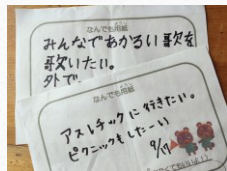 なんでも用紙
みんなであかるい歌を
歌いたい。
外で
なんでも用紙
アスレチックに行きたい。
ピクニックもしたーい
9/17